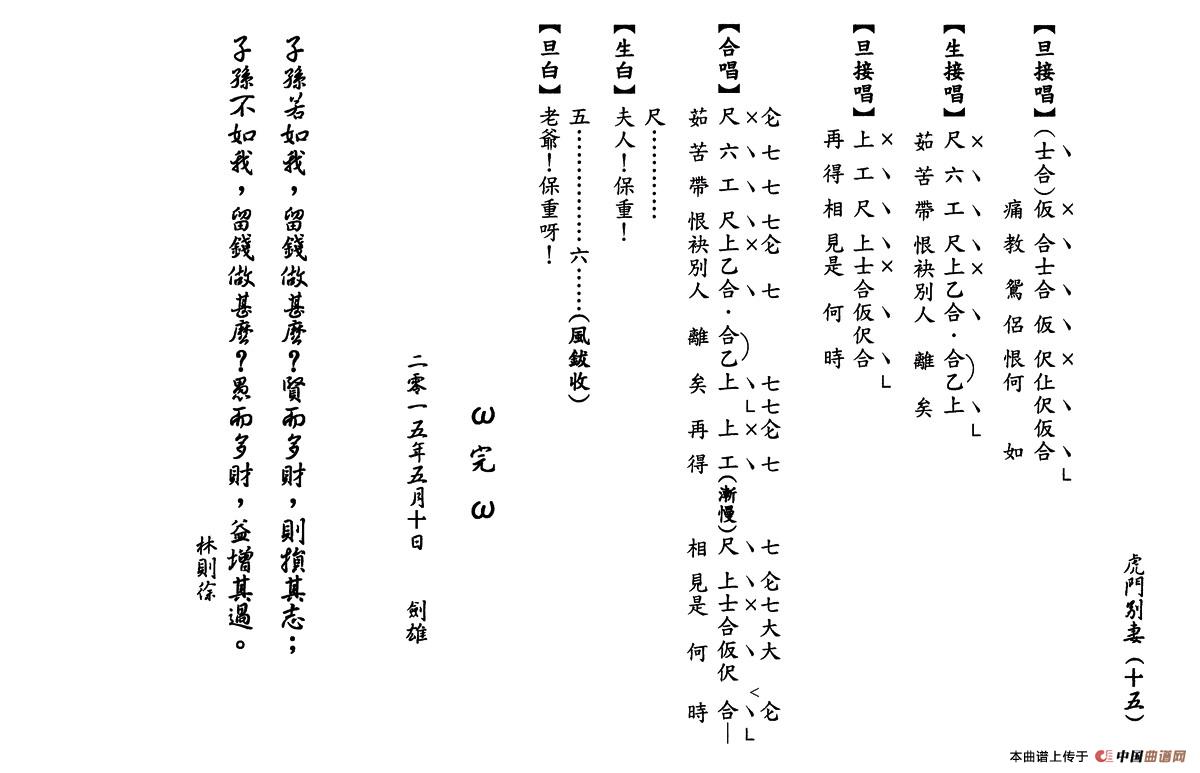 虎門別妻（十五）
【旦接唱】（士合）仮合士合仮伬仩伬仮合
痛教鴛侶恨何如
【生接唱】尺六工尺上乙合·合乙上
茹苦帶恨袂別人離矣
【旦接唱】上工尺上士合仮伬合
再得相見是何時
仑七七七仑七七七仑七七仑七大大仑
【合唱】尺六工尺上乙合·合乙上上工（漸慢）尺上士合仮伬合—
茹苦帶恨袂別人離矣再得相見是何時
尺…………
【生白】夫人！保重！
五………………六……（風鈸收）
【旦白】老爺！保重呀！
ω完ω
二零一五年五月十日 劍雄
子孫若如我，留錢做甚麽？賢而多財，則損其志；
子孫不如我，留錢做甚麽？愚而多財，益增其過。
林則徐
本曲谱上传于 中国曲谱网